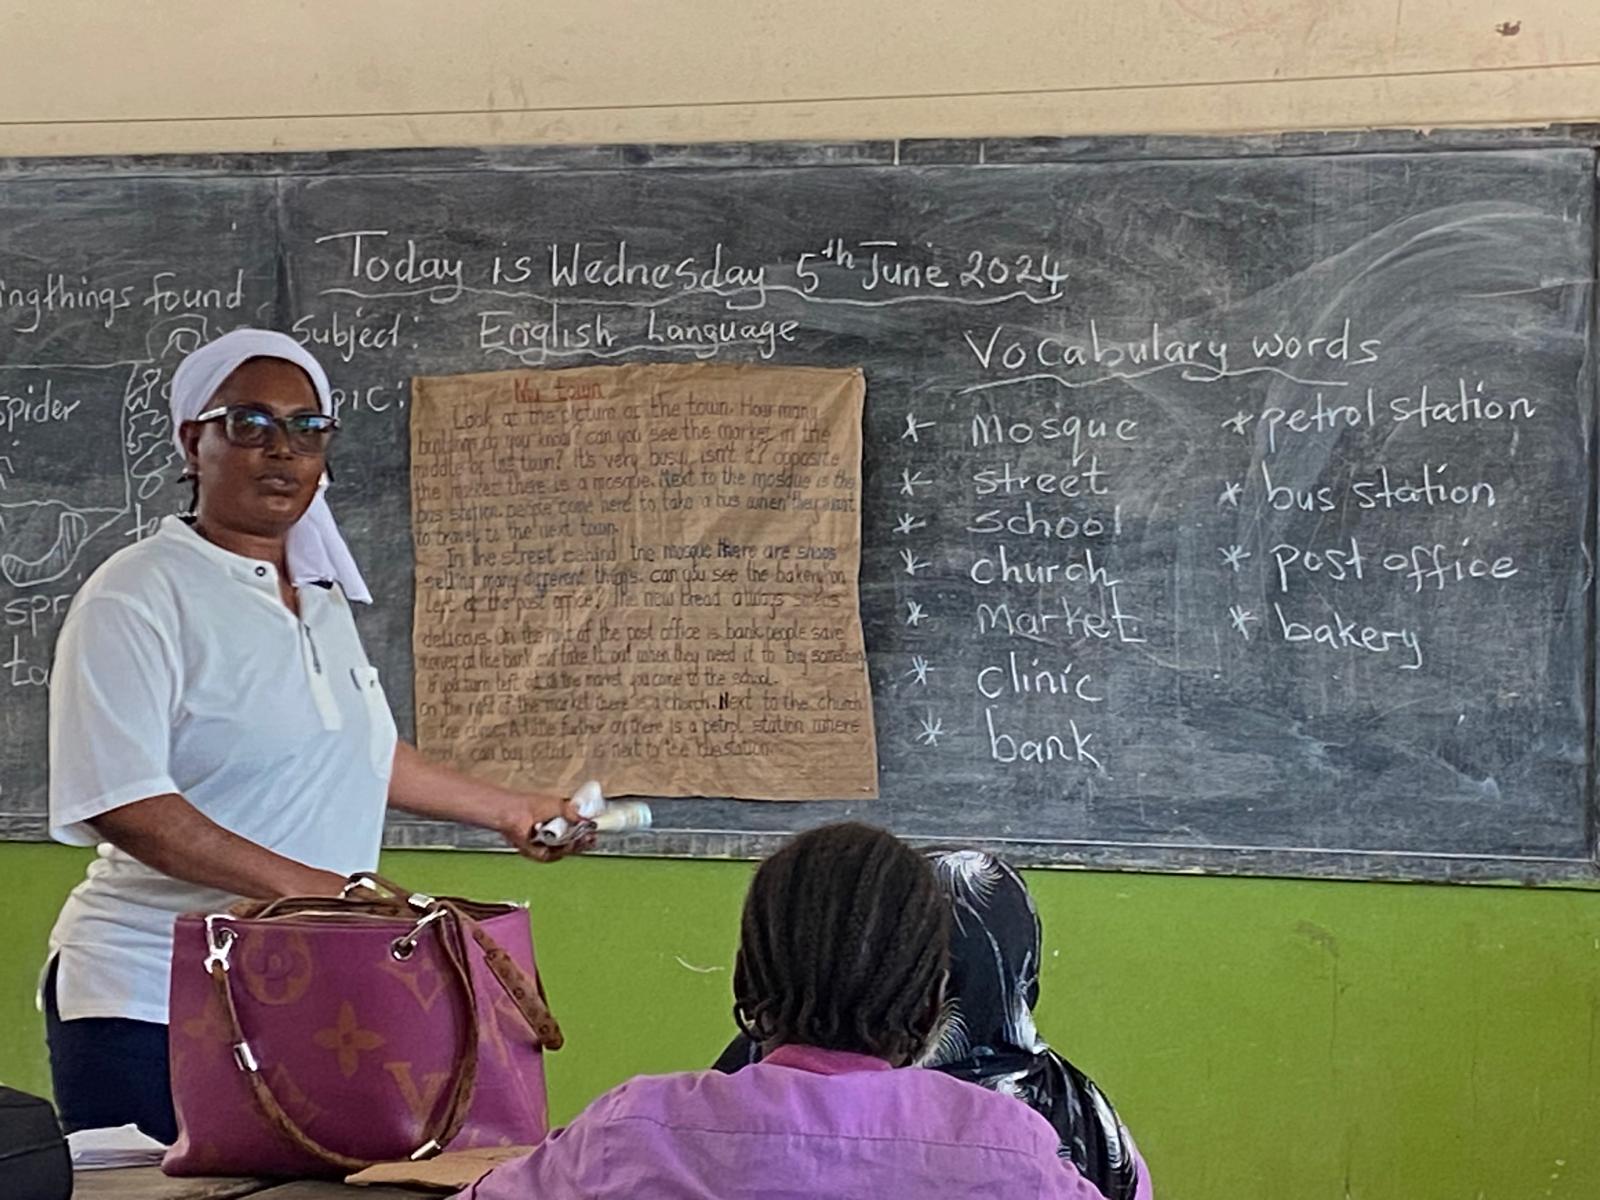 Today is Wednesday 5th June 2024
Subject: English Language
PIC:
ingthings found
spider
spr
ta
My town
Look at the picture of the town. How many
buildings do you know? can you see the market in the
middle of the town? It's very busy, isn't it? opposite
the market there is a mosque. Next to the mosque is the
bus station. people come here to take a bus when they want
to travel to the next town.
In the street behind the mosque there are shops
selling many different things. can you see the bakery on
left of the post office? The new bread always smells
delicious. On the right of the post office is bank people save
money at the bank and take it out when they need it to buy something
If you turn left at the market you come to the school.
on the right of the market there is a church. Next to the church
is the clinic. A little further on there is a petrol station where
can buy petrol. It is next to the bus station.
Vocabulary words
* Mosque
* street
* School
* church
* Market
* clinic
* bank
* petrol station
* bus station
* post office
* bakery